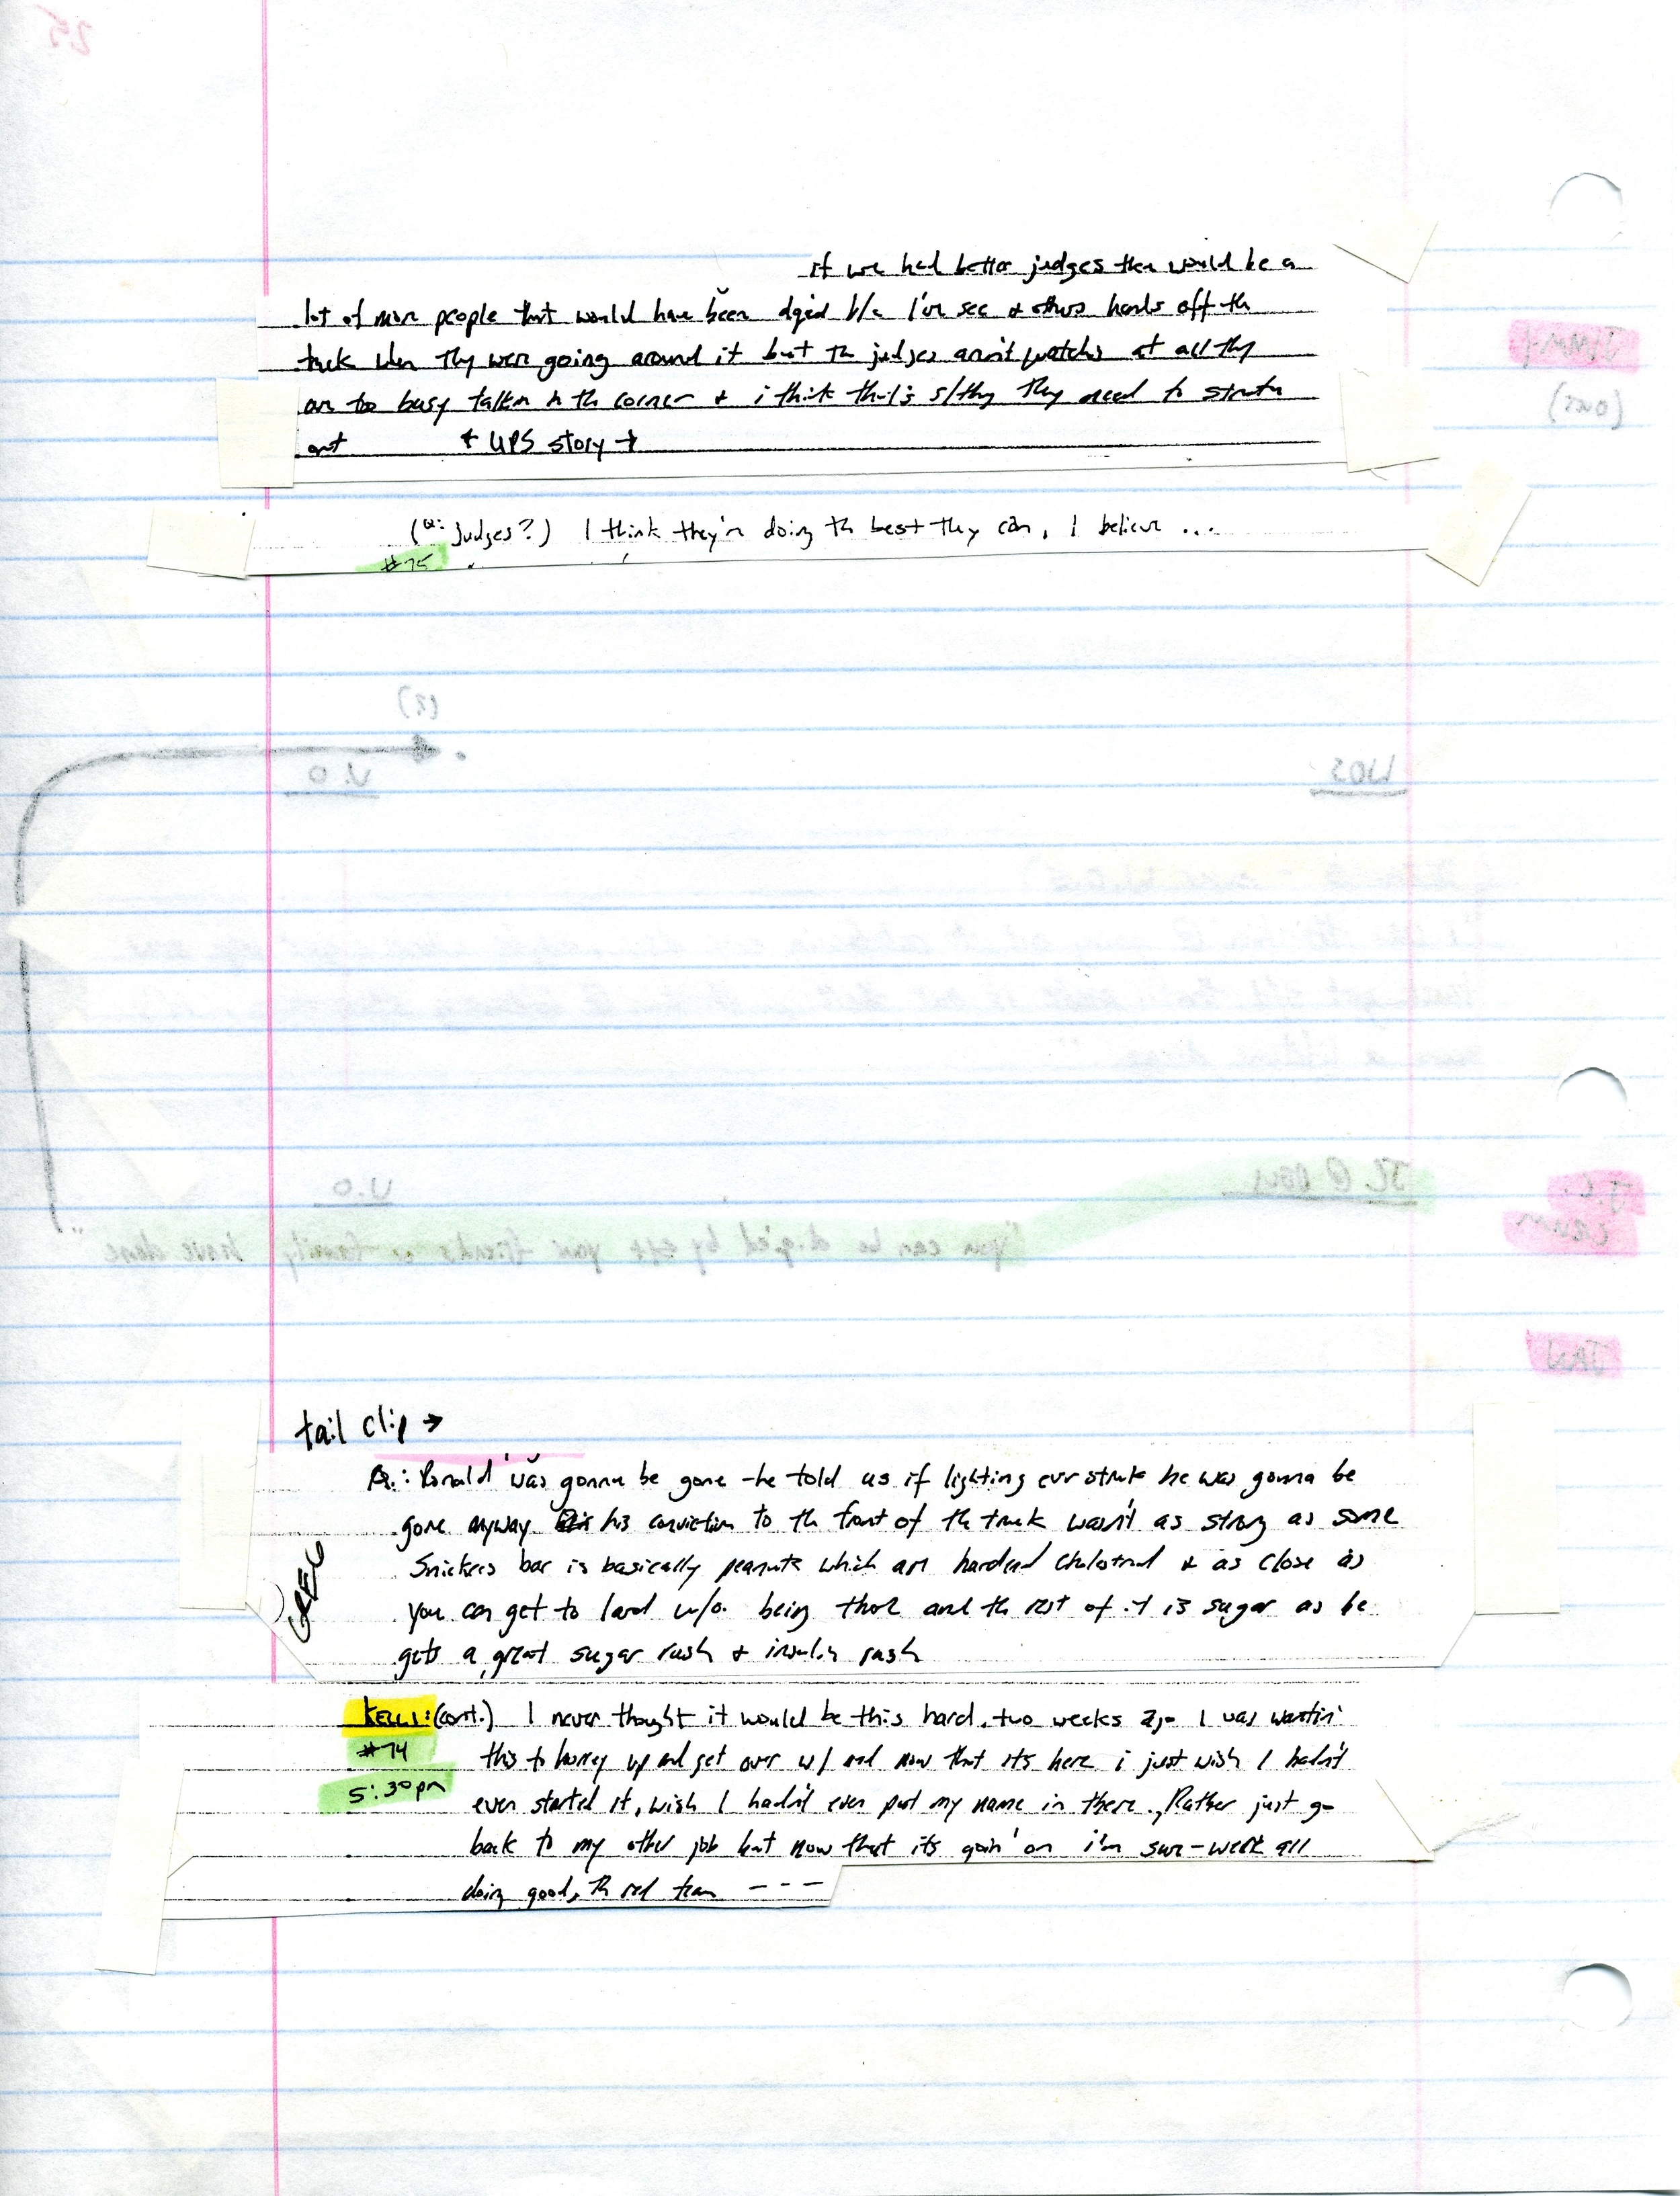 if we had better judges ther would be a
lot of more people that would have been dq'd b/c I've see + others hands off th
truck when they were going around it but th judges aren't watchn at all thy
are too busy talkn in th corner + i think that's s/thg they need to straitn
out + UPS story →
(Q: judges?) I think they're doing th best they can, I believe ...
#75
tail clip →
Q.: Ronald was gonna be gone - he told us if lighting ever struk he was gonna be
gone anyway his conviction to th front of th truck wasn't as strong as some
Snickers bar is basically peanuts which are hardend & as close as
you can get to lard w/o. being and th rest of it is sugar as he
gets a great sugar rush + insulin rush
GREG
KELLI: (cont.) I never thought it would be this hard. two weeks ago I was wantin'
#74 this to hurrey up and get over w/ and now that its here i just wish I hadn't
5:30pm ever started it, wish I hadn't ever put my name in there. Rather just go
back to my other job but now that its goin' on i'm sure - were all
doing good, th red team - - -